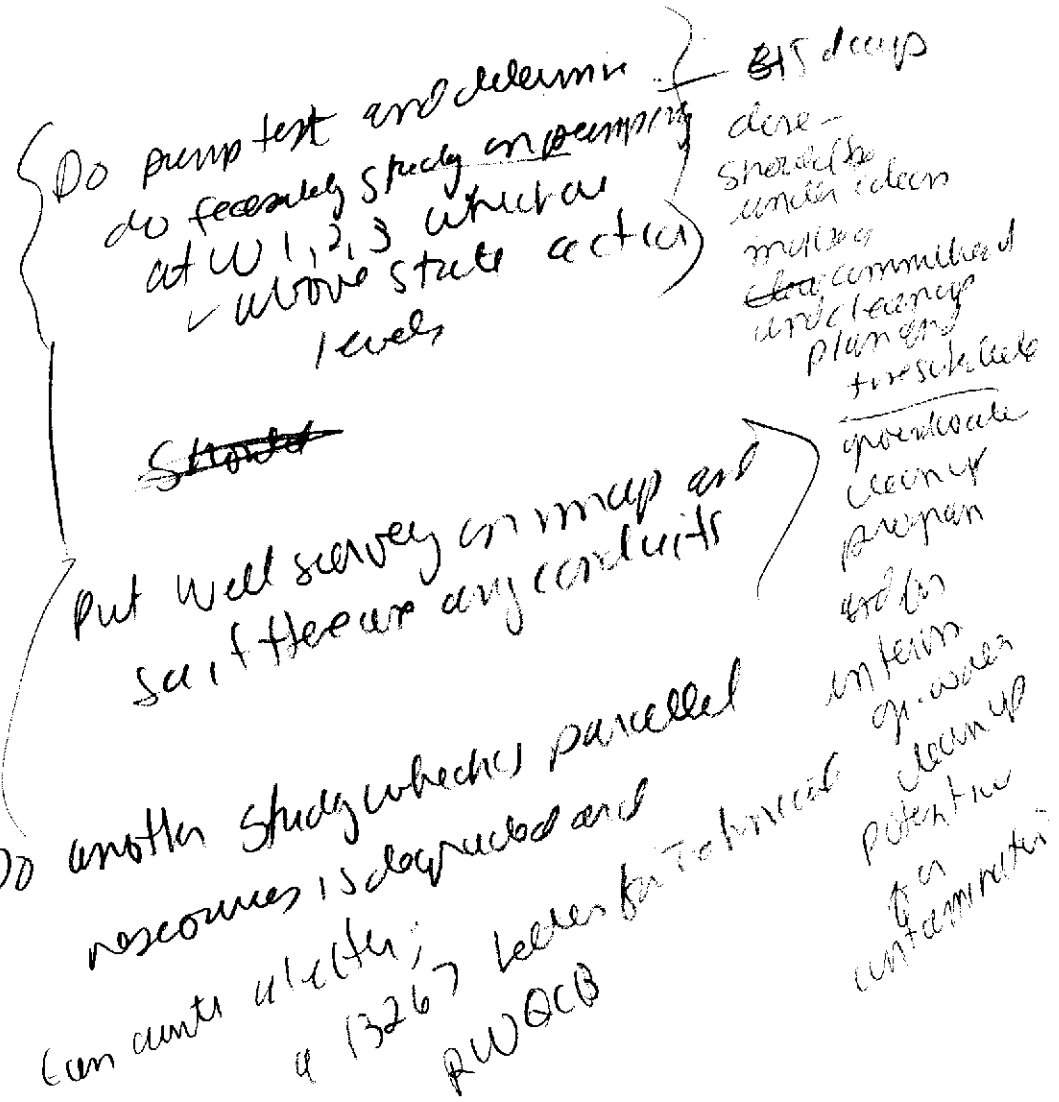 Do pump test and determine
do feasability study on pumping
at W 1, 2, 3 which are
above state action
levels
Should
Put well survey on map and
see if there are any conduits
Do another study whether parcelled
resources is degraded and
can write a letter;
a 13267 letter for Technical
RWQCB
done -
should be
under clean
and cleanup
plan and
time schedule
groundwater
cleanup
program
and for
interim
gr. water
clean up
potential
for
contamination